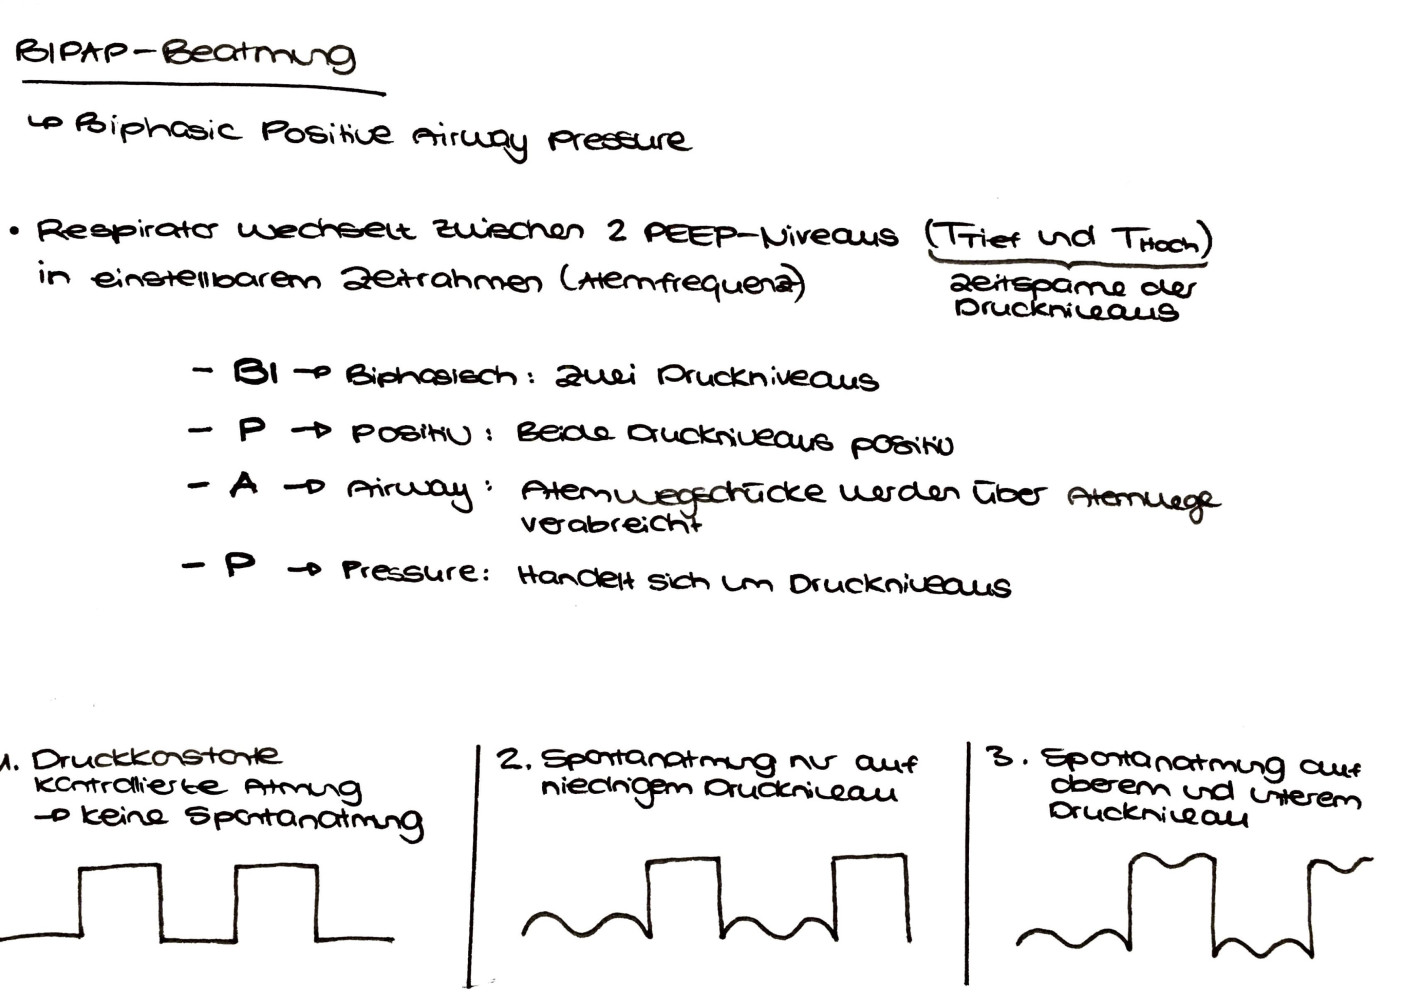 BIPAP-Beatmung
↳ Biphasic Positive Airway Pressure
• Respirator wechselt zwischen 2 PEEP-Niveaus (TTief und THoch)
in einstellbarem Zeitrahmen (Atemfrequenz)
Zeitspanne der
Druckniveaus
- BI → Biphasisch: zwei Druckniveaus
- P → Positiv: Beide Druckniveaus positiv
- A → Airway: Atemwegsdrücke werden über Atemwege
verabreicht
- P → Pressure: Handelt sich um Druckniveaus
1. Druckkonstante
kontrollierte Atmung
→ keine Spontanatmung
2. Spontanatmung nur auf
niedrigem Druckniveau
3. Spontanatmung auf
oberem und unterem
Druckniveau